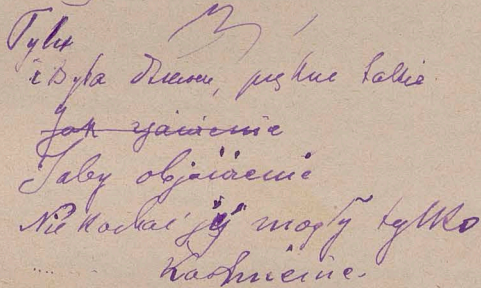 Tytuł
i Była dziewn, piękne takie
Jak zjawienie
Jaby objawienie
Nie kochać jej mogły tylko
Kamienie.